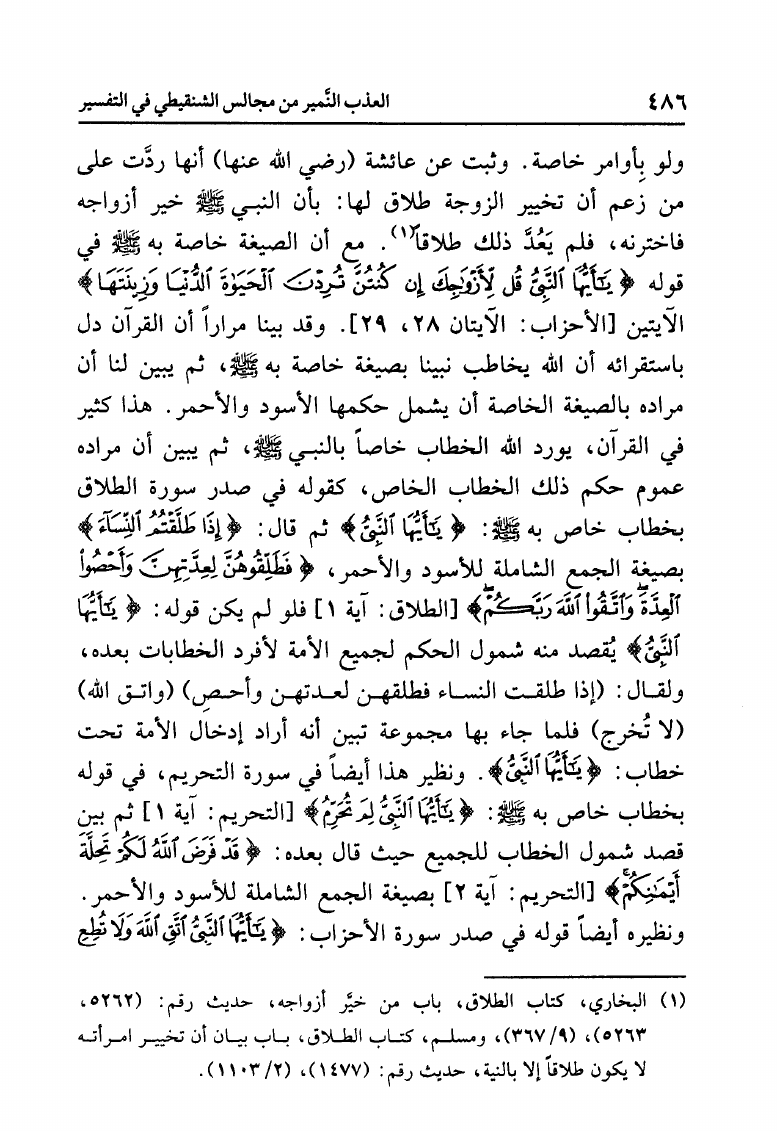 ٤٨٦ العذب النَّمير من مجالس الشنقيطي في التفسير
ولو بأوامر خاصة. وثبت عن عائشة (رضي الله عنها) أنها ردَّت على
من زعم أن تخيير الزوجة طلاق لها: بأن النبي ﷺ خير أزواجه
فاخترنه، فلم يَعُدَّ ذلك طلاقاً(١). مع أن الصيغة خاصة به ﷺ في
قوله ﴿يَٰٓأَيُّهَا ٱلنَّبِيُّ قُل لِّأَزْوَٰجِكَ إِن كُنتُنَّ تُرِدْنَ ٱلْحَيَوٰةَ ٱلدُّنْيَا وَزِينَتَهَا﴾
الآيتين [الأحزاب: الآيتان ٢٨، ٢٩]. وقد بينا مراراً أن القرآن دل
باستقرائه أن الله يخاطب نبينا بصيغة خاصة به ﷺ، ثم يبين لنا أن
مراده بالصيغة الخاصة أن يشمل حكمها الأسود والأحمر. هذا كثير
في القرآن، يورد الله الخطاب خاصاً بالنبي ﷺ، ثم يبين أن مراده
عموم حكم ذلك الخطاب الخاص، كقوله في صدر سورة الطلاق
بخطاب خاص به ﷺ: ﴿يَٰٓأَيُّهَا ٱلنَّبِيُّ﴾ ثم قال: ﴿إِذَا طَلَّقْتُمُ ٱلنِّسَآءَ﴾
بصيغة الجمع الشاملة للأسود والأحمر، ﴿فَطَلِّقُوهُنَّ لِعِدَّتِهِنَّ وَأَحْصُوا۟
ٱلْعِدَّةَ ۖ وَٱتَّقُوا۟ ٱللَّهَ رَبَّكُمْ ۖ﴾ [الطلاق: آية ١] فلو لم يكن قوله: ﴿يَٰٓأَيُّهَا
ٱلنَّبِيُّ﴾ يُقصد منه شمول الحكم لجميع الأمة لأفرد الخطابات بعده،
ولقال: (إذا طلقت النساء فطلقهن لعدتهن وأحصِ) (واتق الله)
(لا تُخرج) فلما جاء بها مجموعة تبين أنه أراد إدخال الأمة تحت
خطاب: ﴿يَٰٓأَيُّهَا ٱلنَّبِيُّ﴾. ونظير هذا أيضاً في سورة التحريم، في قوله
بخطاب خاص به ﷺ: ﴿يَٰٓأَيُّهَا ٱلنَّبِيُّ لِمَ تُحَرِّمُ﴾ [التحريم: آية ١] ثم بين
قصد شمول الخطاب للجميع حيث قال بعده: ﴿قَدْ فَرَضَ ٱللَّهُ لَكُمْ تَحِلَّةَ
أَيْمَٰنِكُمْ ۚ﴾ [التحريم: آية ٢] بصيغة الجمع الشاملة للأسود والأحمر.
ونظيره أيضاً قوله في صدر سورة الأحزاب: ﴿يَٰٓأَيُّهَا ٱلنَّبِيُّ ٱتَّقِ ٱللَّهَ وَلَا تُطِعِ
(١) البخاري، كتاب الطلاق، باب من خيَّر أزواجه، حديث رقم: (٥٢٦٢،
٥٢٦٣)، (٣٦٧/٩)، ومسلم، كتاب الطلاق، باب بيان أن تخيير امرأته
لا يكون طلاقاً إلا بالنية، حديث رقم: (١٤٧٧)، (١١٠٣/٢).